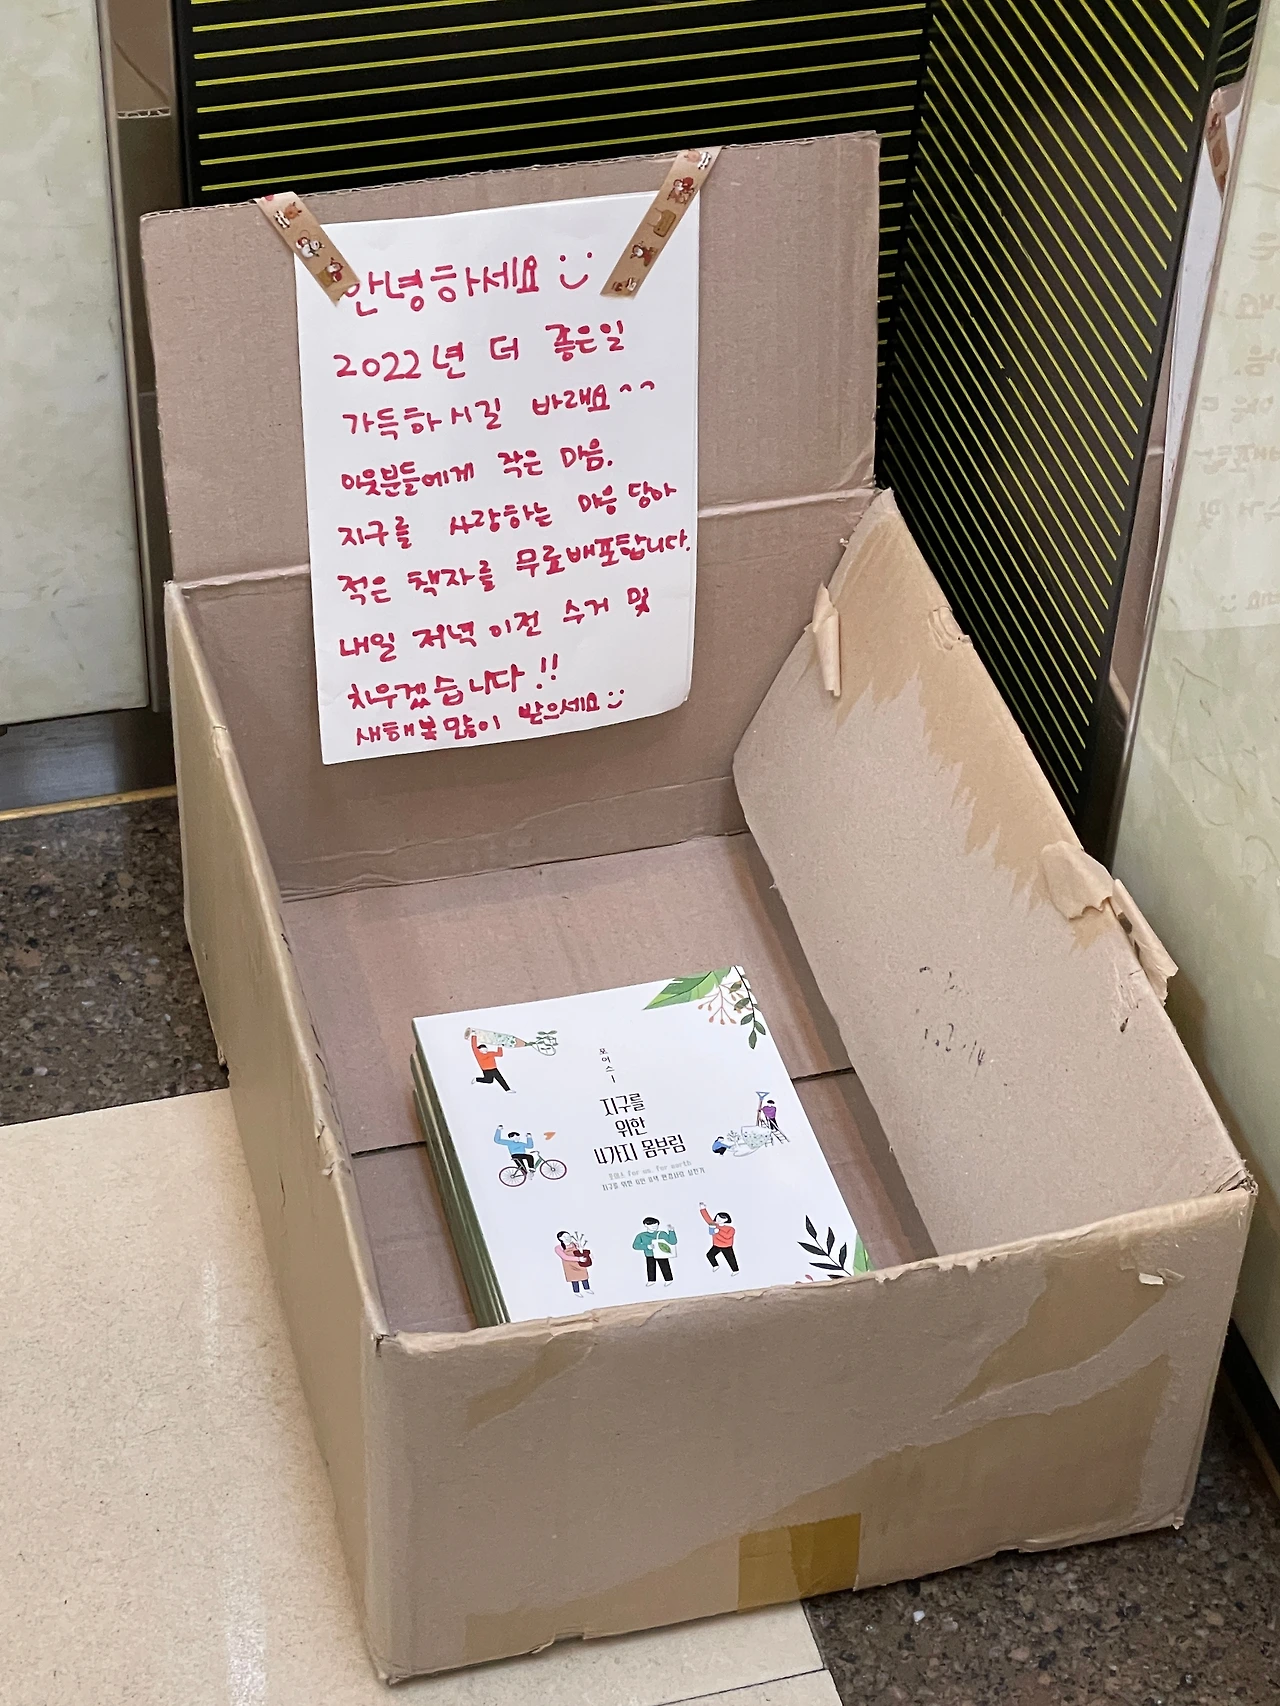 안녕하세요 :)
2022년 더 좋은일
가득하시길 바래요^^
이웃분들에게 작은 마음.
지구를 사랑하는 마음 담아
적은 책자를 무료배포합니다.
내일 저녁 이전 수거 및
치우겠습니다!!
새해복 많이 받으세요 :)
포어스 1
지구를
위한
4가지 몸부림
포어스 for us, for earth
지구를 위한